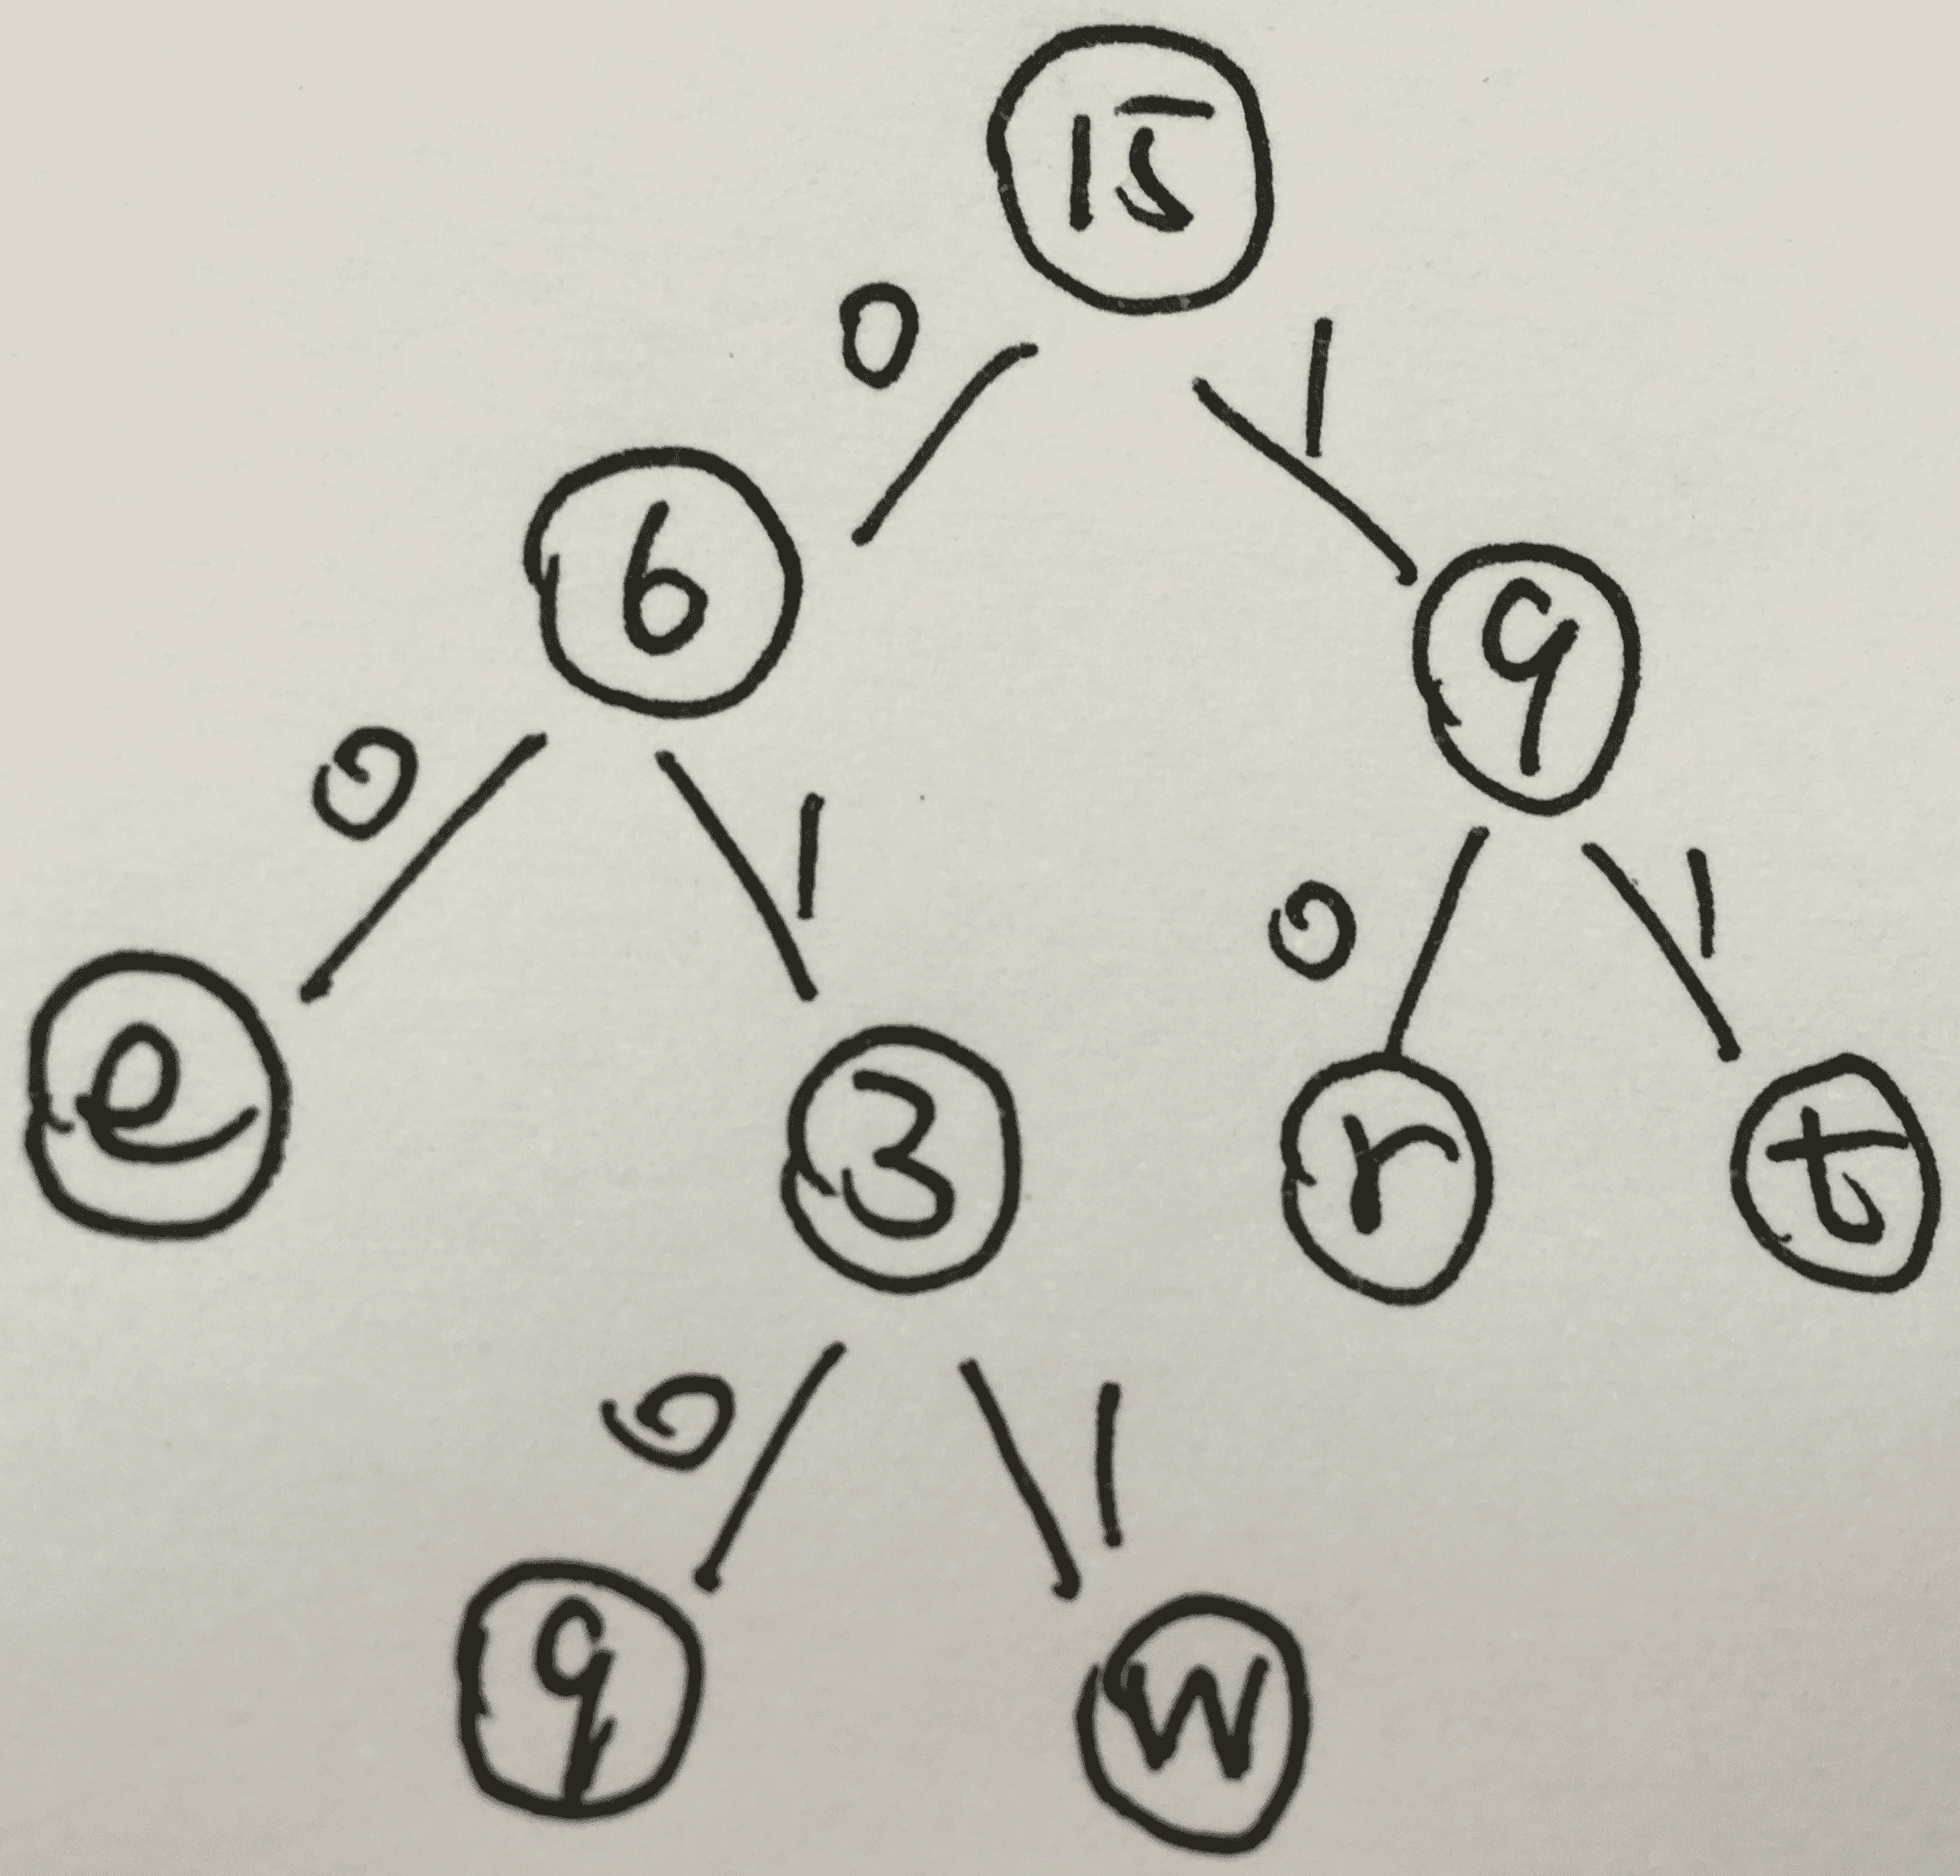 15
0 1
6 9
0 1 0 1
e 3 r t
0 1
q w